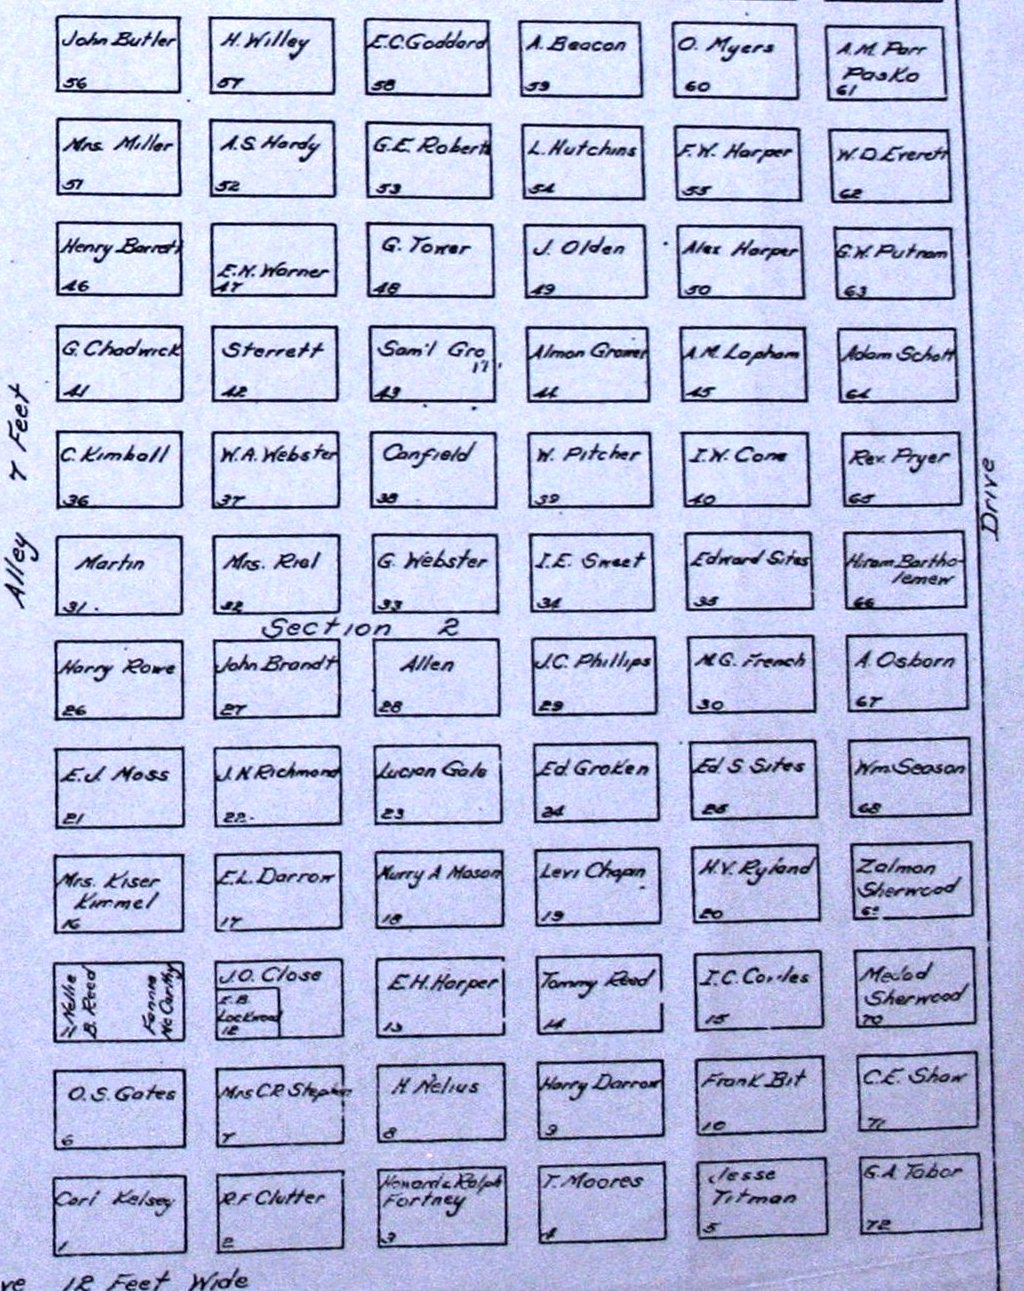 John Butler
56
H. Willey
57
E.C. Goddard
58
A. Beacon
59
O. Myers
60
A.M. Parr
Pasko
61
Mrs. Miller
51
A.S. Hardy
52
G.E. Roberts
53
L. Hutchins
54
F.W. Harper
55
W.D. Everett
62
Henry Barrett
46
E.N. Warner
47
G. Tower
48
J. Olden
49
Alex Harper
50
G.W. Putnam
63
G. Chadwick
41
Sterrett
42
Sam'l Gro
43
Almon
44
A.M. Lapham
45
Adam Schott
64
C. Kimball
36
W.A. Webster
37
Canfield
38
W. Pitcher
39
I.W. Cone
40
Rev. Pryer
65
Alley 7 Feet
Drive
Martin
31.
Mrs. Riel
32
G. Webster
33
I.E. Sweet
34
Edward Sites
35
Hiram Bartho-
lemew
66
Section 2
Harry Rowe
26
John Brandt
27
Allen
28
J.C. Phillips
29
M.G. French
30
A. Osborn
67
E.J. Moss
21
J.N. Richmond
22.
Lucian Gale
23
Ed. Groken
24
Ed. S. Sites
25
Wm. Season
68
Mrs. Kiser
Kimmel
16
E.L. Darrow
17
A Mason
18
Levi Chapin
19
H.V. Ryland
20
Zalmon
Sherwood
69
11 Nellie
B. Reed
Fannie
McCarthy
J.O. Close
E.B.
Lockwood
12
E.H. Harper
13
Tommy Reed
14
I.C.
15
Medad
Sherwood
70
O.S. Gates
6
Mrs C.R. Stephen
7
H. Nelius
8
Harry Darrow
9
Frank Bit
10
C.E. Shaw
71
Carl Kelsey
1
R.F Clutter
2
Howard & Ralph
Fortney
3
T. Moores
4
Jesse
Titman
5
G.A. Tabor
72
ve 12 Feet Wide